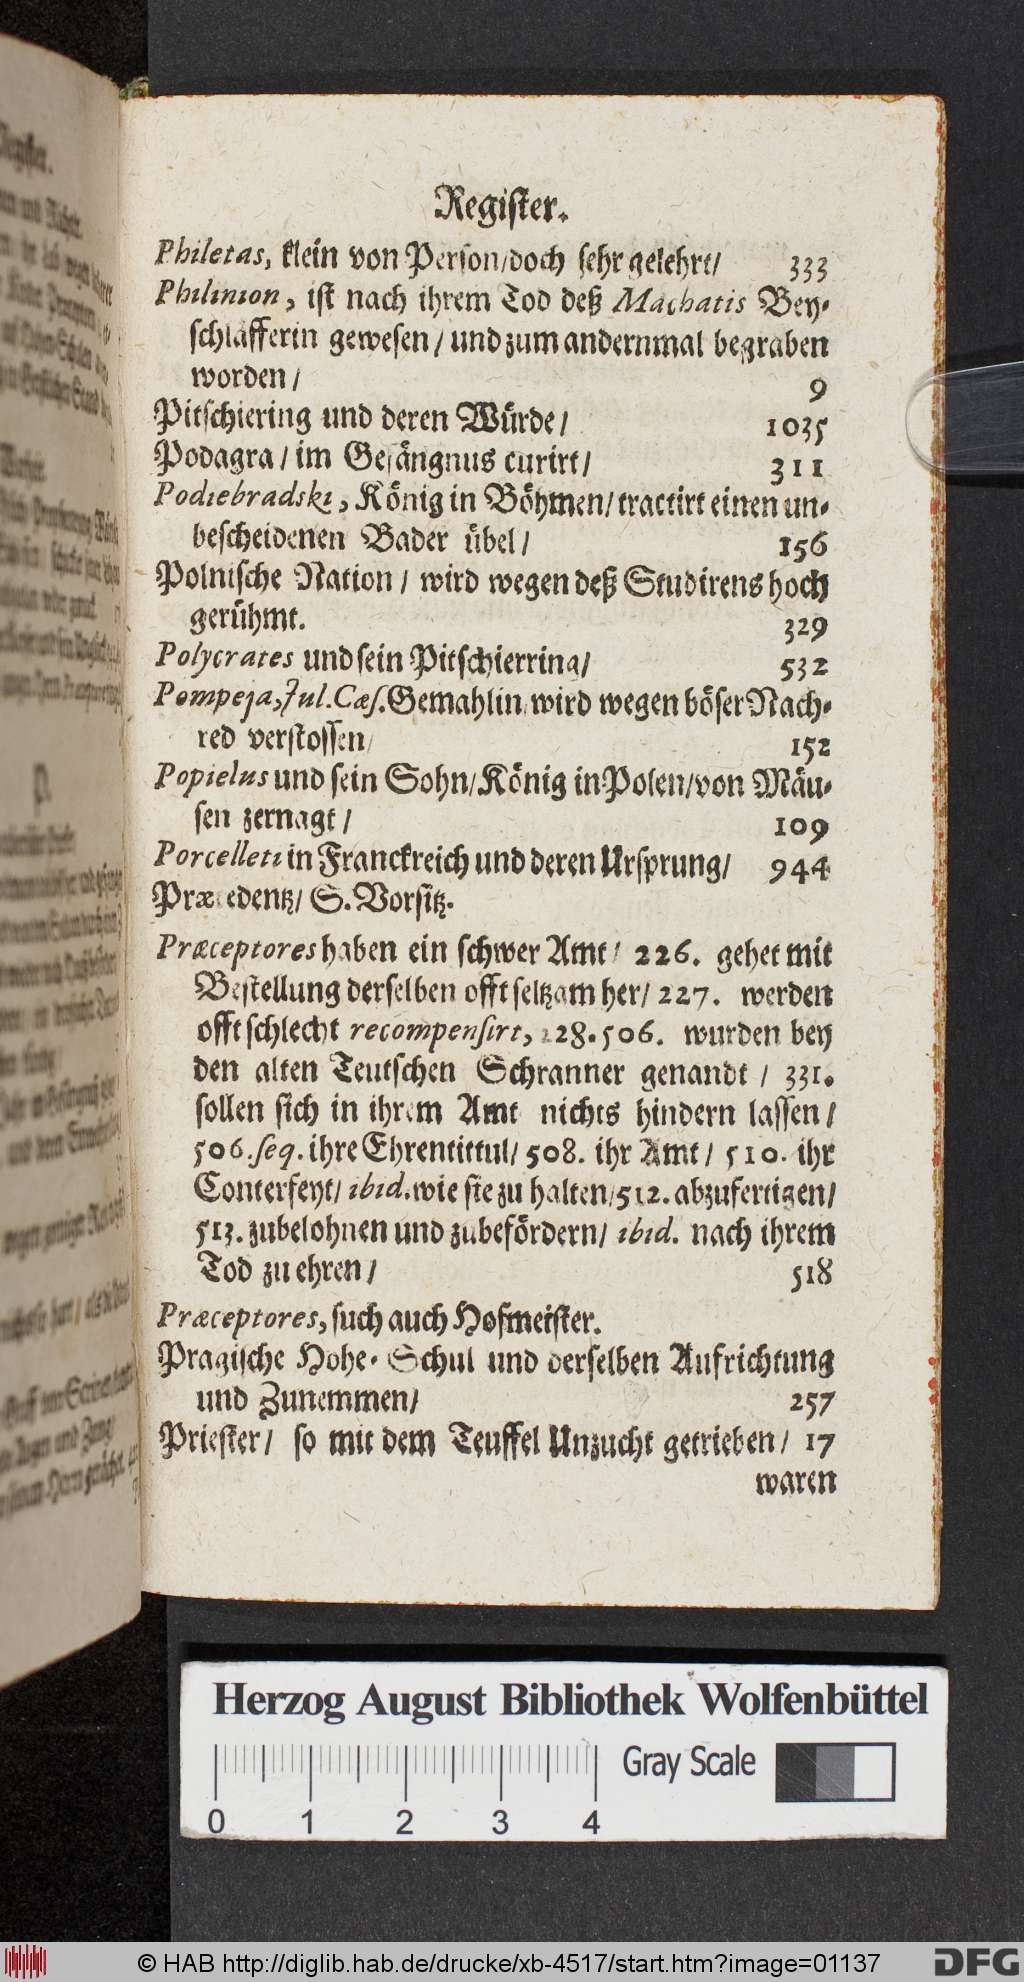 Register.
Philetas, klein von Person/doch sehr gelehrt/ 333
Philinion, ist nach ihrem Tod deß Machatis Bey-
schläfferin gewesen/ und zum andernmal begraben
worden/ 9
Pitschiering und deren Würde/ 1035
Podagra/ im Gefängnus curirt/ 311
Podiebradski, König in Böhmen/ tractirt einen un-
bescheidenen Bader übel/ 156
Polnische Nation/ wird wegen deß Studirens hoch
gerühmt. 329
Polycrates und sein Pitschierring/ 532
Pompeja, Jul. Cæs. Gemahlin/ wird wegen böser Nach-
red verstossen/ 152
Popielus und sein Sohn/ König in Polen/ von Mäu-
sen zernagt/ 109
Porcelleti in Franckreich und deren Ursprung/ 944
Præcedentz/ S. Vorsitz.
Præceptores haben ein schwer Amt/ 226. gehet mit
Bestellung derselben offt seltzam her/ 227. werden
offt schlecht recompensirt, 228. 506. wurden bey
den alten Teutschen Schranner genandt/ 331.
sollen sich in ihrem Amt nichts hindern lassen/
506. seq. ihre Ehrentittul/ 508. ihr Amt/ 510. ihr
Conterfeyt/ ibid. wie sie zu halten/ 512. abzufertigen/
513. zubelohnen und zubefördern/ ibid. nach ihrem
Tod zu ehren/ 518
Præceptores, such auch Hofmeister.
Pragische Hohe-Schul und derselben Aufrichtung
und Zunemmen/ 257
Priester/ so mit dem Teuffel Unzucht getrieben/ 17
waren
Herzog August Bibliothek Wolfenbüttel
Gray Scale
0 1 2 3 4
© HAB http://diglib.hab.de/drucke/xb-4517/start.htm?image=01137
DFG